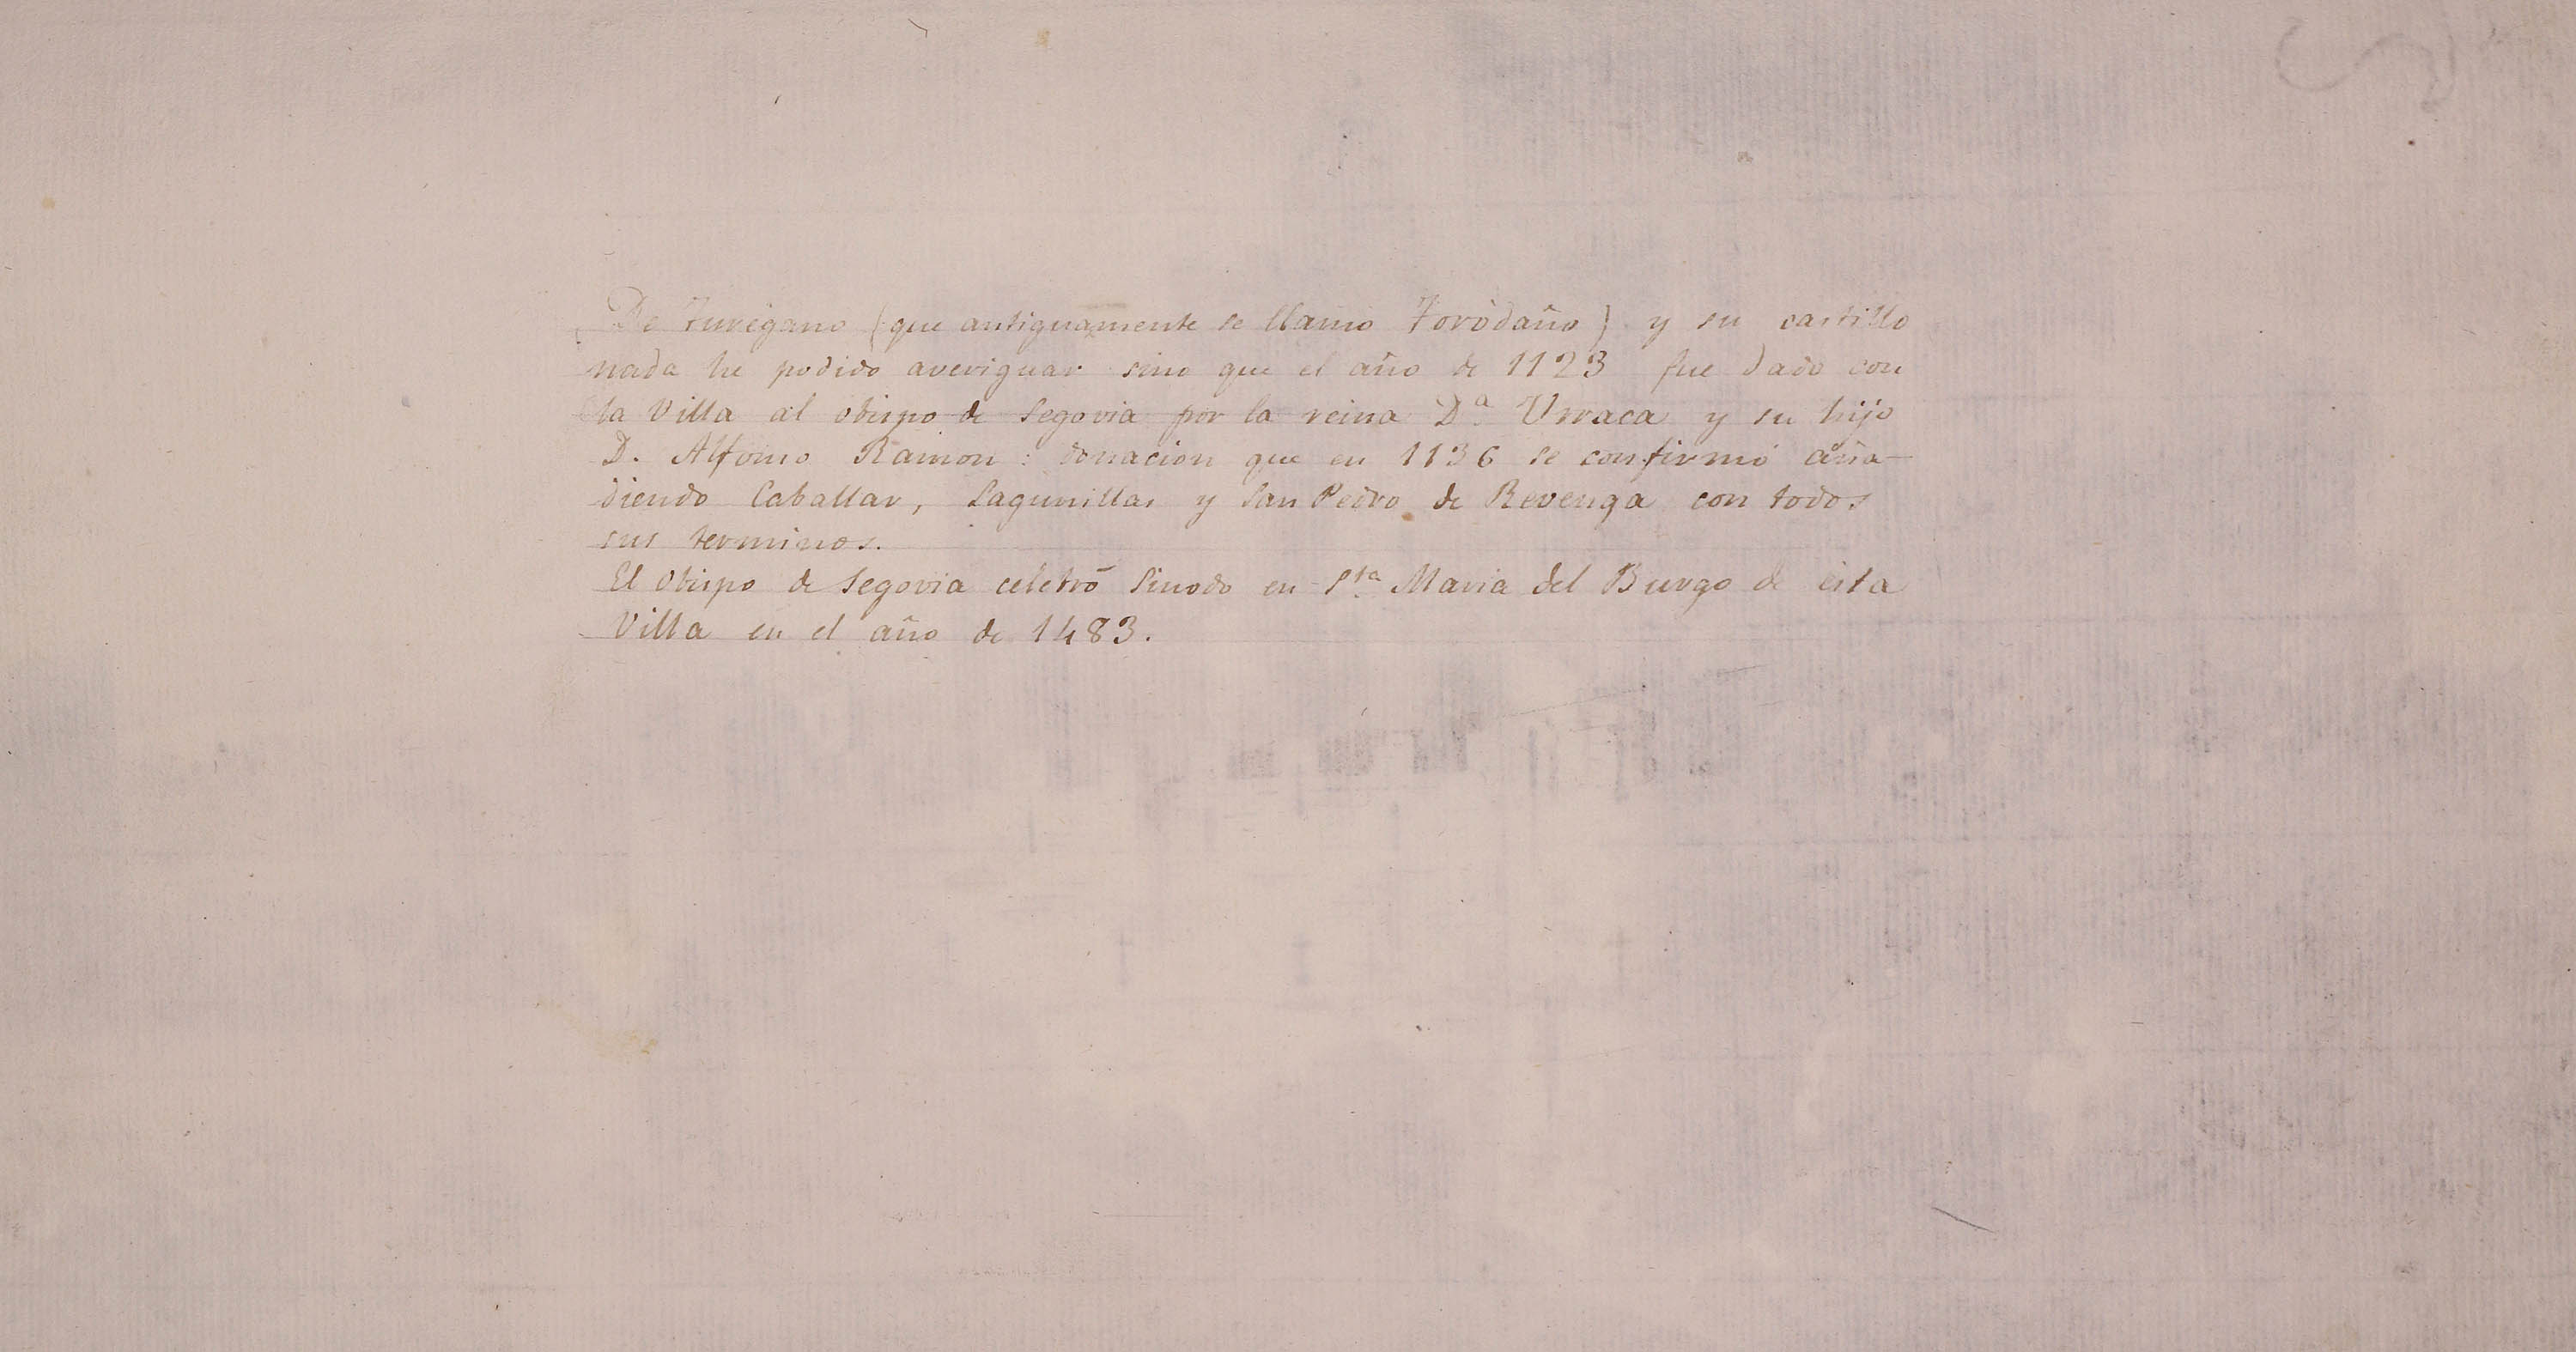 De Turégano (que antiguamente se llamo Toródaño) y su castillo
nada he podido averiguar sino que el año de 1123 fue dado con
la Villa al obispo de Segovia por la reina Dª Urraca y su hijo
D. Alfonso Ramon: donacion que en 1136 se confirmó aña-
diendo Caballar, Lagunillas y San Pedro de Revenga con todos
sus terminos.
El Obispo de Segovia celebró Sinodo en Sta Maria del Burgo de ésta
Villa en el año de 1483.